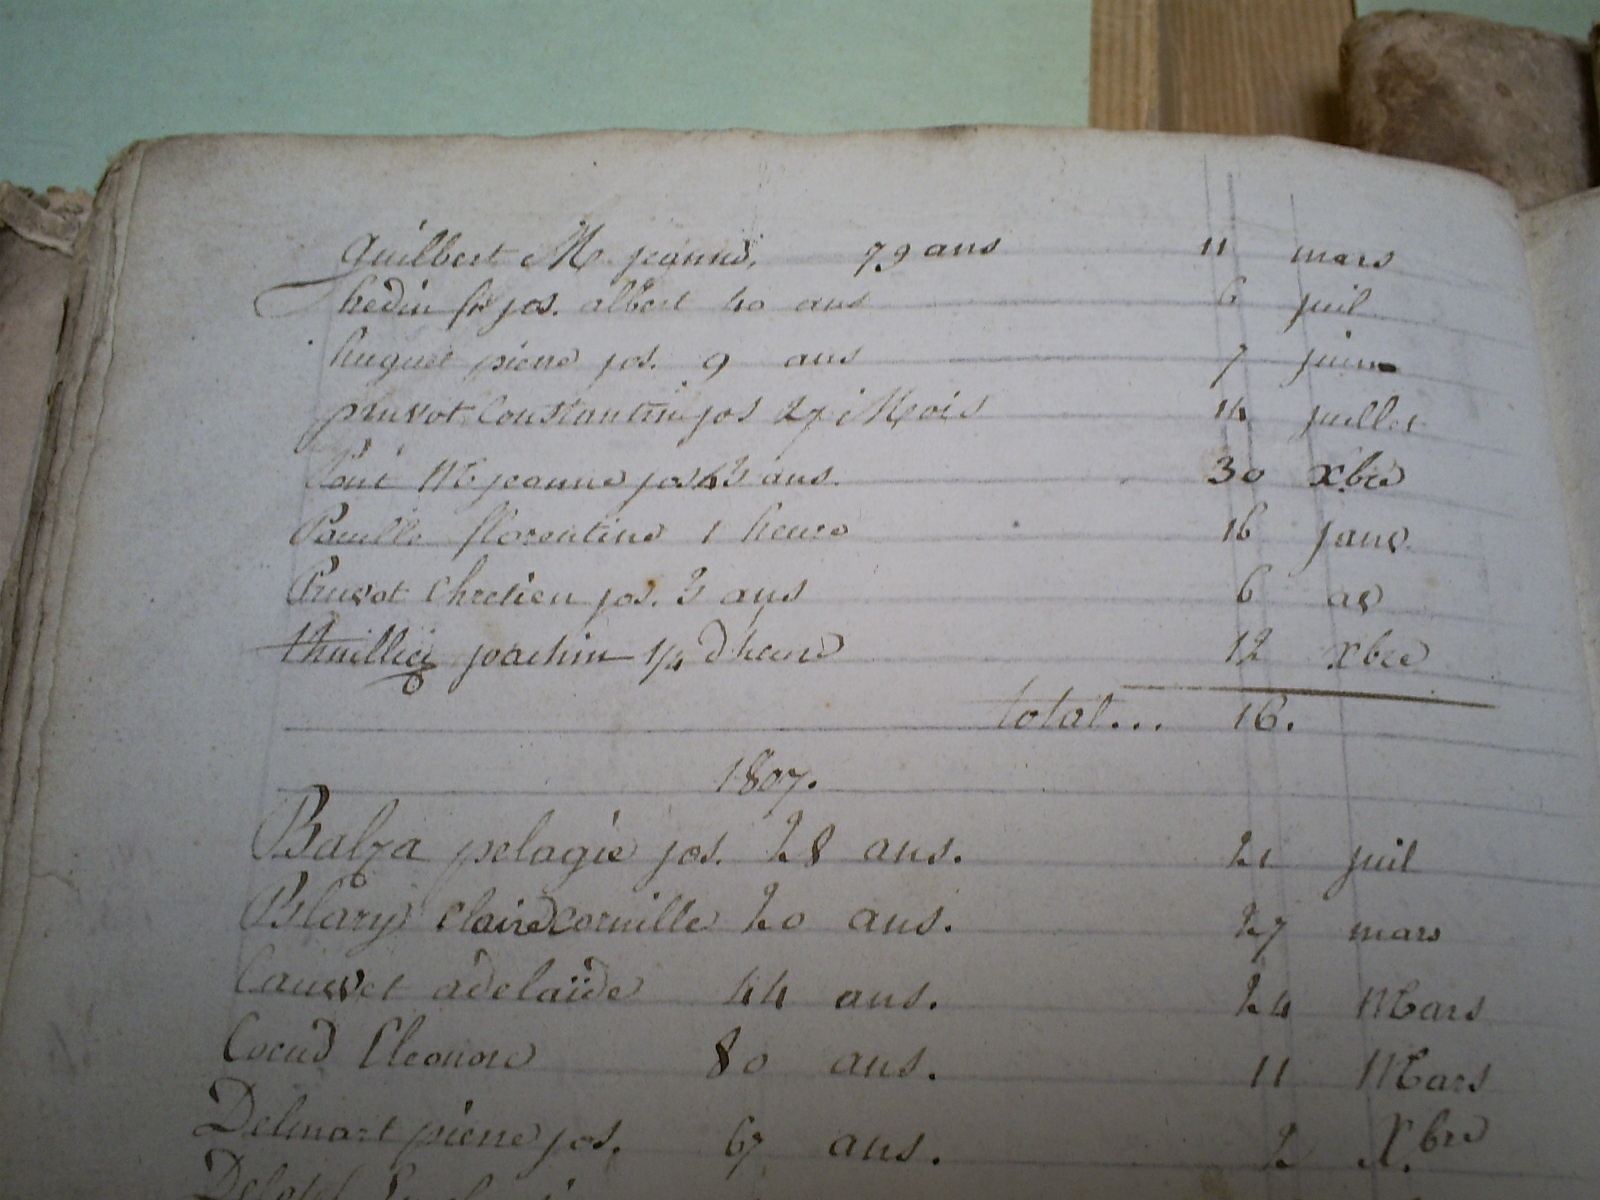 Guilbert M jeanne, 79 ans 11 mars
hedin fr jos. albert 40 ans 6 juil
huguet pierre jos. 9 ans 7 juin
pruvot Constantin jos 27 Mois 14 juillet
M jeanne jos 43 ans. 30 xbre
Pouille florentine 1 heure 16 janv.
Pruvot Chretien jos. 3 ans 6 av
thuillier joachim 1/4 d heure 12 xbre
total... 16.
1807.
Balza pelagie jos. 28 ans. 21 juil
Blary Claire 20 ans. 27 mars
Cauvet adelaïde 44 ans. 24 Mars
Coeud Eleonore 80 ans. 11 Mars
Delmart pierre jos. 67 ans. 2 Xbre